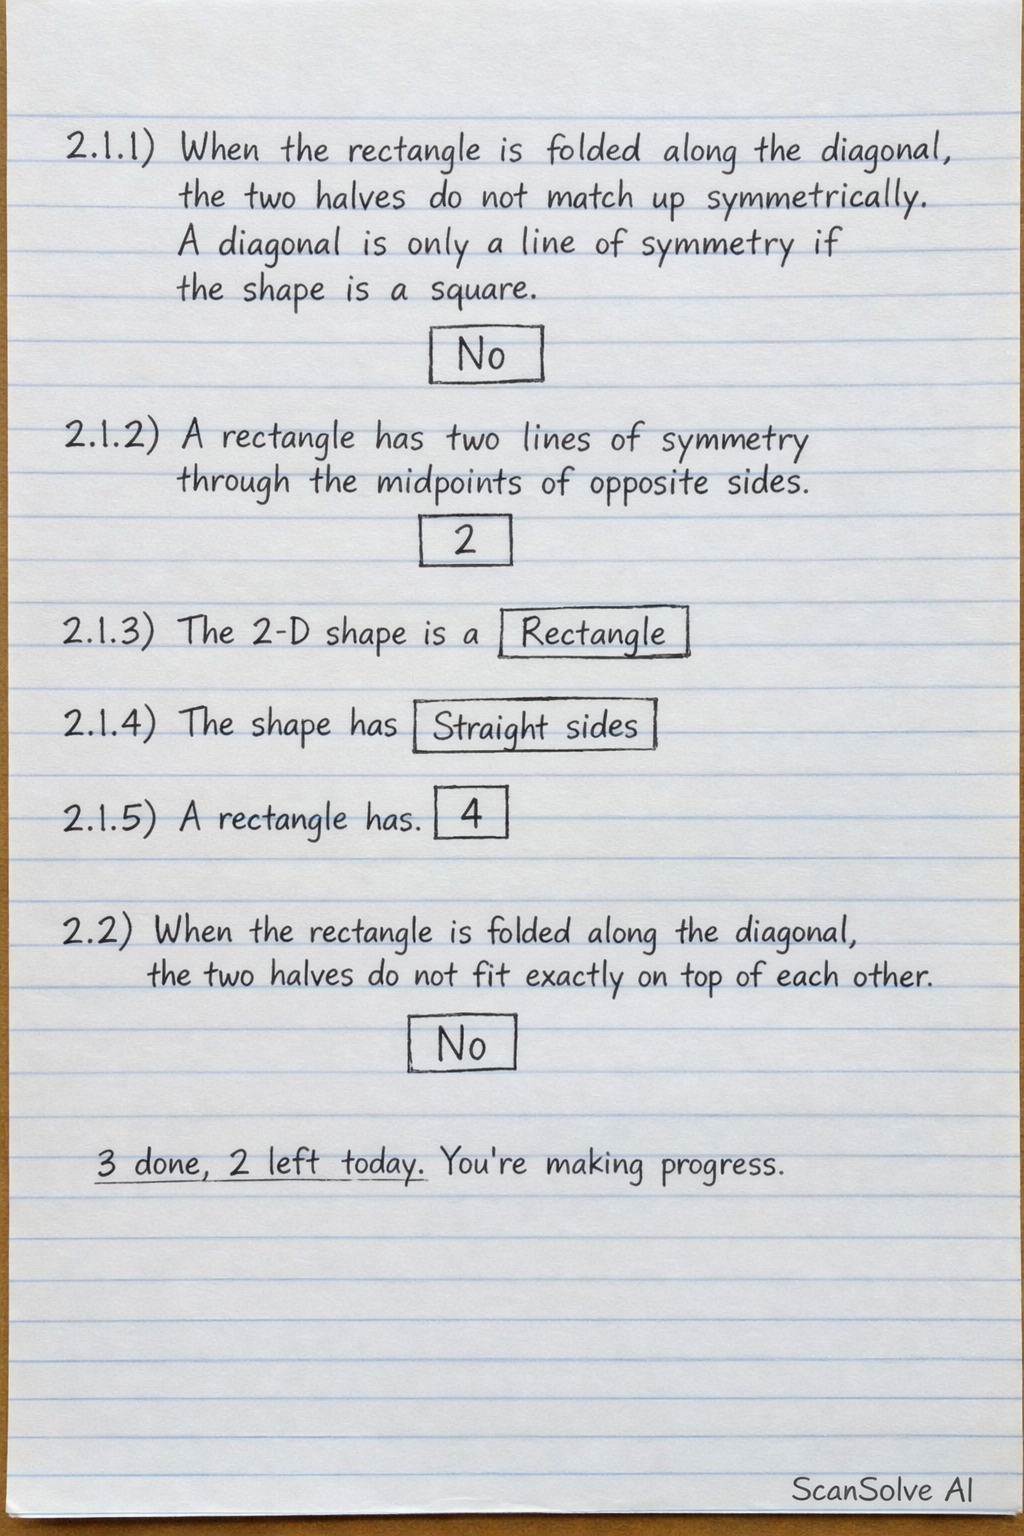 2.1.1) When the rectangle is folded along the diagonal,
the two halves do not match up symmetrically.
A diagonal is only a line of symmetry if
the shape is a square.
No
2.1.2) A rectangle has two lines of symmetry
through the midpoints of opposite sides.
2
2.1.3) The 2-D shape is a Rectangle
2.1.4) The shape has Straight sides
2.1.5) A rectangle has. 4
2.2) When the rectangle is folded along the diagonal,
the two halves do not fit exactly on top of each other.
No
3 done, 2 left today. You're making progress.
ScanSolve AI